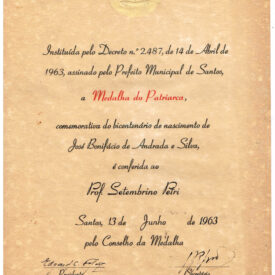 Instituída pelo Decreto n.º 2.487, de 14 de Abril de
1963, assinado pelo Prefeito Municipal de Santos,
a Medalha do Patriarca,
comemorativa do bicentenário de nascimento de
José Bonifácio de Andrada e Silva,
é conferida ao
Prof. Setembrino Petri
Santos, 13 de Junho de 1963
pelo Conselho da Medalha